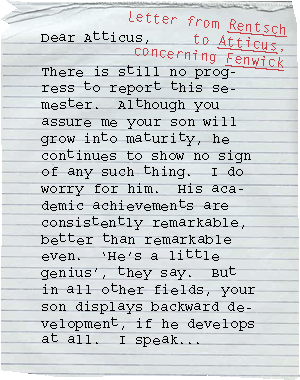 Letter from Rentsch
to Atticus,
concerning Fenwick
Dear Atticus,
There is still no prog-
ress to report this se-
mester.  Although you
assure me your son will
grow into maturity, he
continues to show no sign
of any such thing.  I do
worry for him.  His aca-
demic achievements are
consistently remarkable,
better than remarkable
even.  ‘He’s a little
genius’, they say.  But
in all other fields, your
son displays backward de-
velopment, if he develops
at all.  I speak...